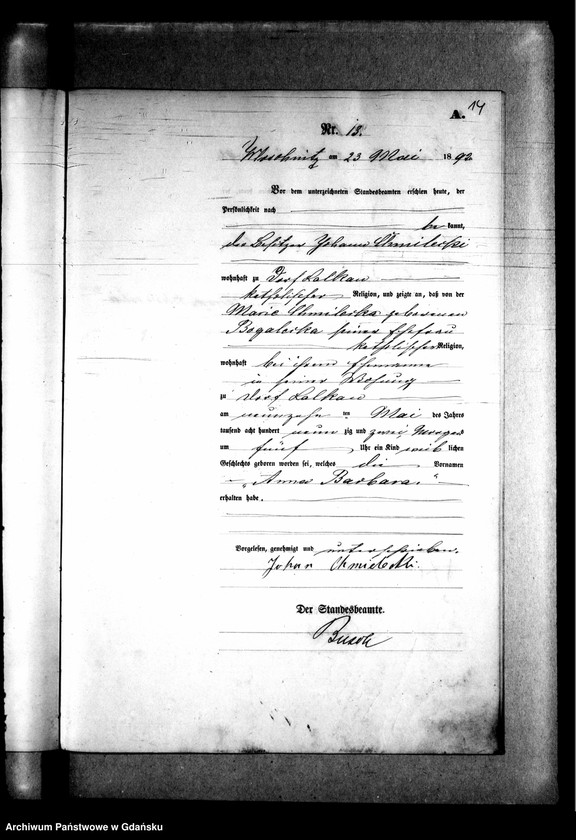 14
A.
Nr. 13.
Kloschnitz am 23 Mai 1892
Vor dem unterzeichneten Standesbeamten erschien heute, der
Persönlichkeit nach
be kannt,
der Besitzer Johann Chmilecki
wohnhaft zu Dorf Lalkau
katholischer Religion, und zeigte an, daß von der
Marie Chmilecka geborenen
seiner Ehefrau
katholischer Religion,
wohnhaft bei ihrem Ehemanne
in seiner Wohung
zu Dorf Lalkau
am neunzehn ten Mai des Jahres
tausend acht hundert neun zig und zwei, Morgens
um fünf Uhr ein Kind weib lichen
Geschlechts geboren worden sei, welches die Vornamen
"Anna Barbara."
erhalten habe.
Vorgelesen, genehmigt und unterschrieben.
Johan
Der Standesbeamte.
Archiwum Państwowe w Gdańsku